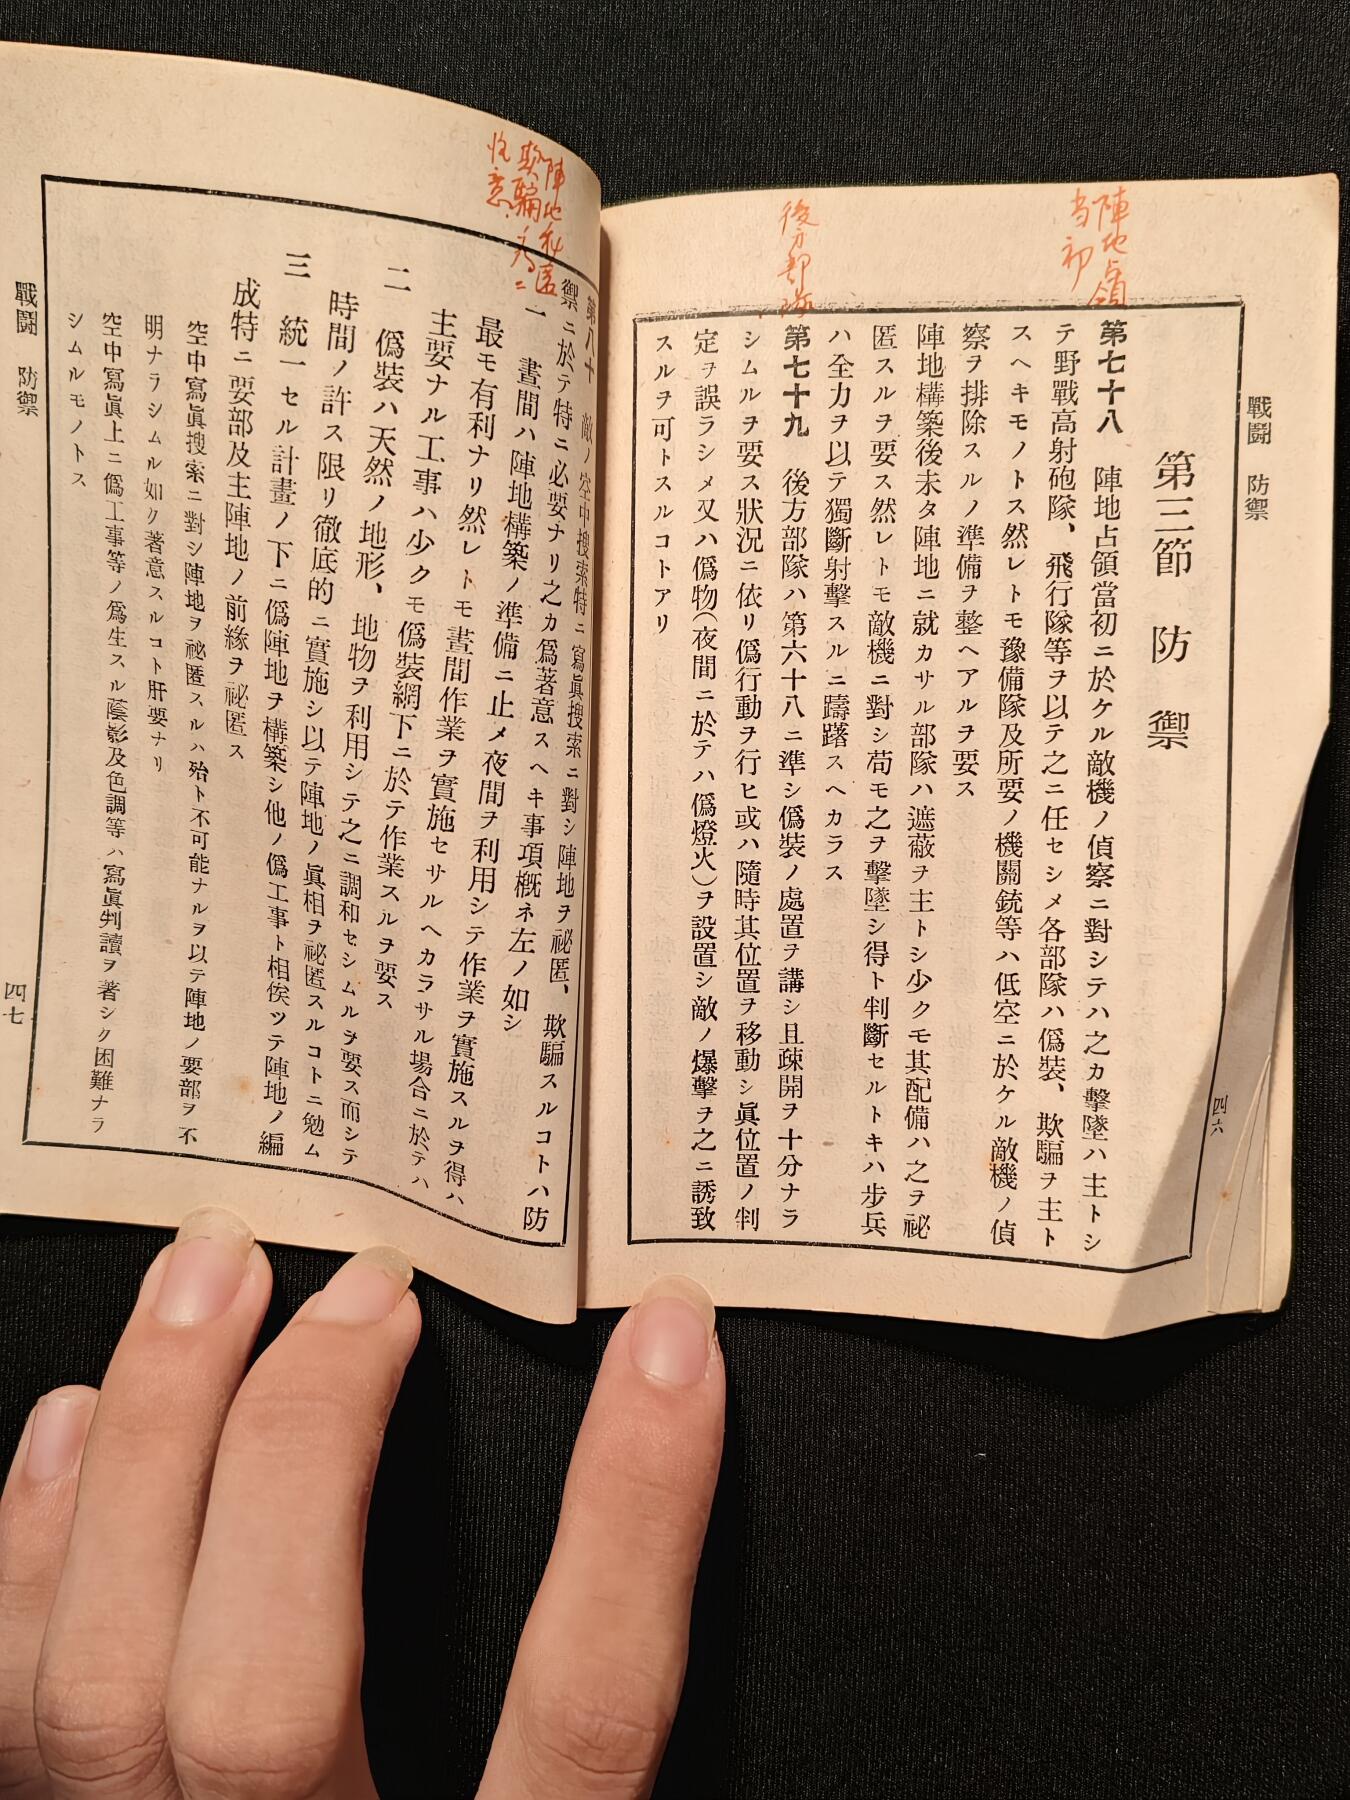 戰鬪 防禦
四六
陣地占領
当初
後方部隊
第三節 防禦
第七十八 陣地占領當初ニ於ケル敵機ノ偵察ニ對シテハ之カ擊墜ハ主トシ
テ野戰高射砲隊、飛行隊等ヲ以テ之ニ任セシメ各部隊ハ僞裝、欺騙ヲ主ト
スヘキモノトス然レトモ豫備隊及所要ノ機關銃等ハ低空ニ於ケル敵機ノ偵
察ヲ排除スルノ準備ヲ整ヘアルヲ要ス
陣地構築後未タ陣地ニ就カサル部隊ハ遮蔽ヲ主トシ少クモ其配備ハ之ヲ祕
匿スルヲ要ス然レトモ敵機ニ對シ苟モ之ヲ擊墜シ得ト判斷セルトキハ步兵
ハ全力ヲ以テ獨斷射擊スルニ躊躇スヘカラス
第七十九 後方部隊ハ第六十八ニ準シ僞裝ノ處置ヲ講シ且疎開ヲ十分ナラ
シムルヲ要ス狀況ニ依リ僞行動ヲ行ヒ或ハ隨時其位置ヲ移動シ眞位置ノ判
定ヲ誤ラシメ又ハ僞物(夜間ニ於テハ僞燈火)ヲ設置シ敵ノ爆擊ヲ之ニ誘致
スルヲ可トスルコトアリ
陣地秘匿
欺騙ノ為ニ
注意
第八十 敵ノ空中搜索特ニ寫眞搜索ニ對シ陣地ヲ祕匿、欺騙スルコトハ防
禦ニ於テ特ニ必要ナリ之カ爲著意スヘキ事項槪ネ左ノ如シ
一 晝間ハ陣地構築ノ準備ニ止メ夜間ヲ利用シテ作業ヲ實施スルヲ得ハ
最モ有利ナリ然レトモ晝間作業ヲ實施セサルヘカラサル場合ニ於テハ
主要ナル工事ハ少クモ僞裝網下ニ於テ作業スルヲ要ス
二 僞裝ハ天然ノ地形、地物ヲ利用シテ之ニ調和セシムルヲ要ス而シテ
時間ノ許ス限リ徹底的ニ實施シ以テ陣地ノ眞相ヲ祕匿スルコトニ勉ム
三 統一セル計畫ノ下ニ僞陣地ヲ構築シ他ノ僞工事ト相俟ツテ陣地ノ編
成特ニ要部及主陣地ノ前緣ヲ祕匿ス
空中寫眞搜索ニ對シ陣地ヲ祕匿スルハ殆ト不可能ナルヲ以テ陣地ノ要部ヲ不
明ナラシムル如ク著意スルコト肝要ナリ
空中寫眞上ニ僞工事等ノ爲生スル蔭影及色調等ハ寫眞判讀ヲ著シク困難ナラ
シムルモノトス
戰鬪 防禦
四七